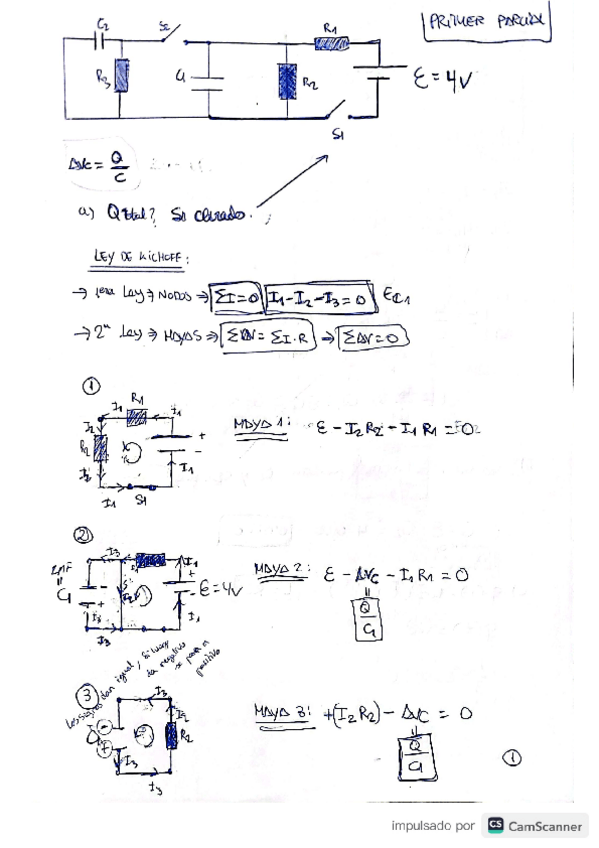 PRIMER PARCIAL
C2
S2
R1
R3
C1
R2
ε = 4V
S1
ΔVc = Q/C
a) Qtotal? S1 cerrado.
LEY DE KICHOFF:
→ 1era Ley → NODOS ⇒ ΣI=0 I1-I2-I3=0 EC1
→ 2ª Ley → MAYAS ⇒ ΣΔV = ΣI·R → ΣΔV=0
①
R1
I1
I1
I2
R2
I2
+
-
I1
I1
S1
MAYA 1: ε - I2R2 - I1R1 = 0
②
I3
I1
2MF
=
C1
-
+
I2
+
-
ε=4V
I3
I1
I3
MAYA 2: ε - ΔVc - I1R1 = 0
Q/C1
Los signos dan igual, si luego
da negativo
se pasa a
positivo
③
I3
I2
R2
-
+
I3
I3
MAYA 3: +(I2R2) - ΔVC = 0
Q/C1
①
impulsado por CS CamScanner